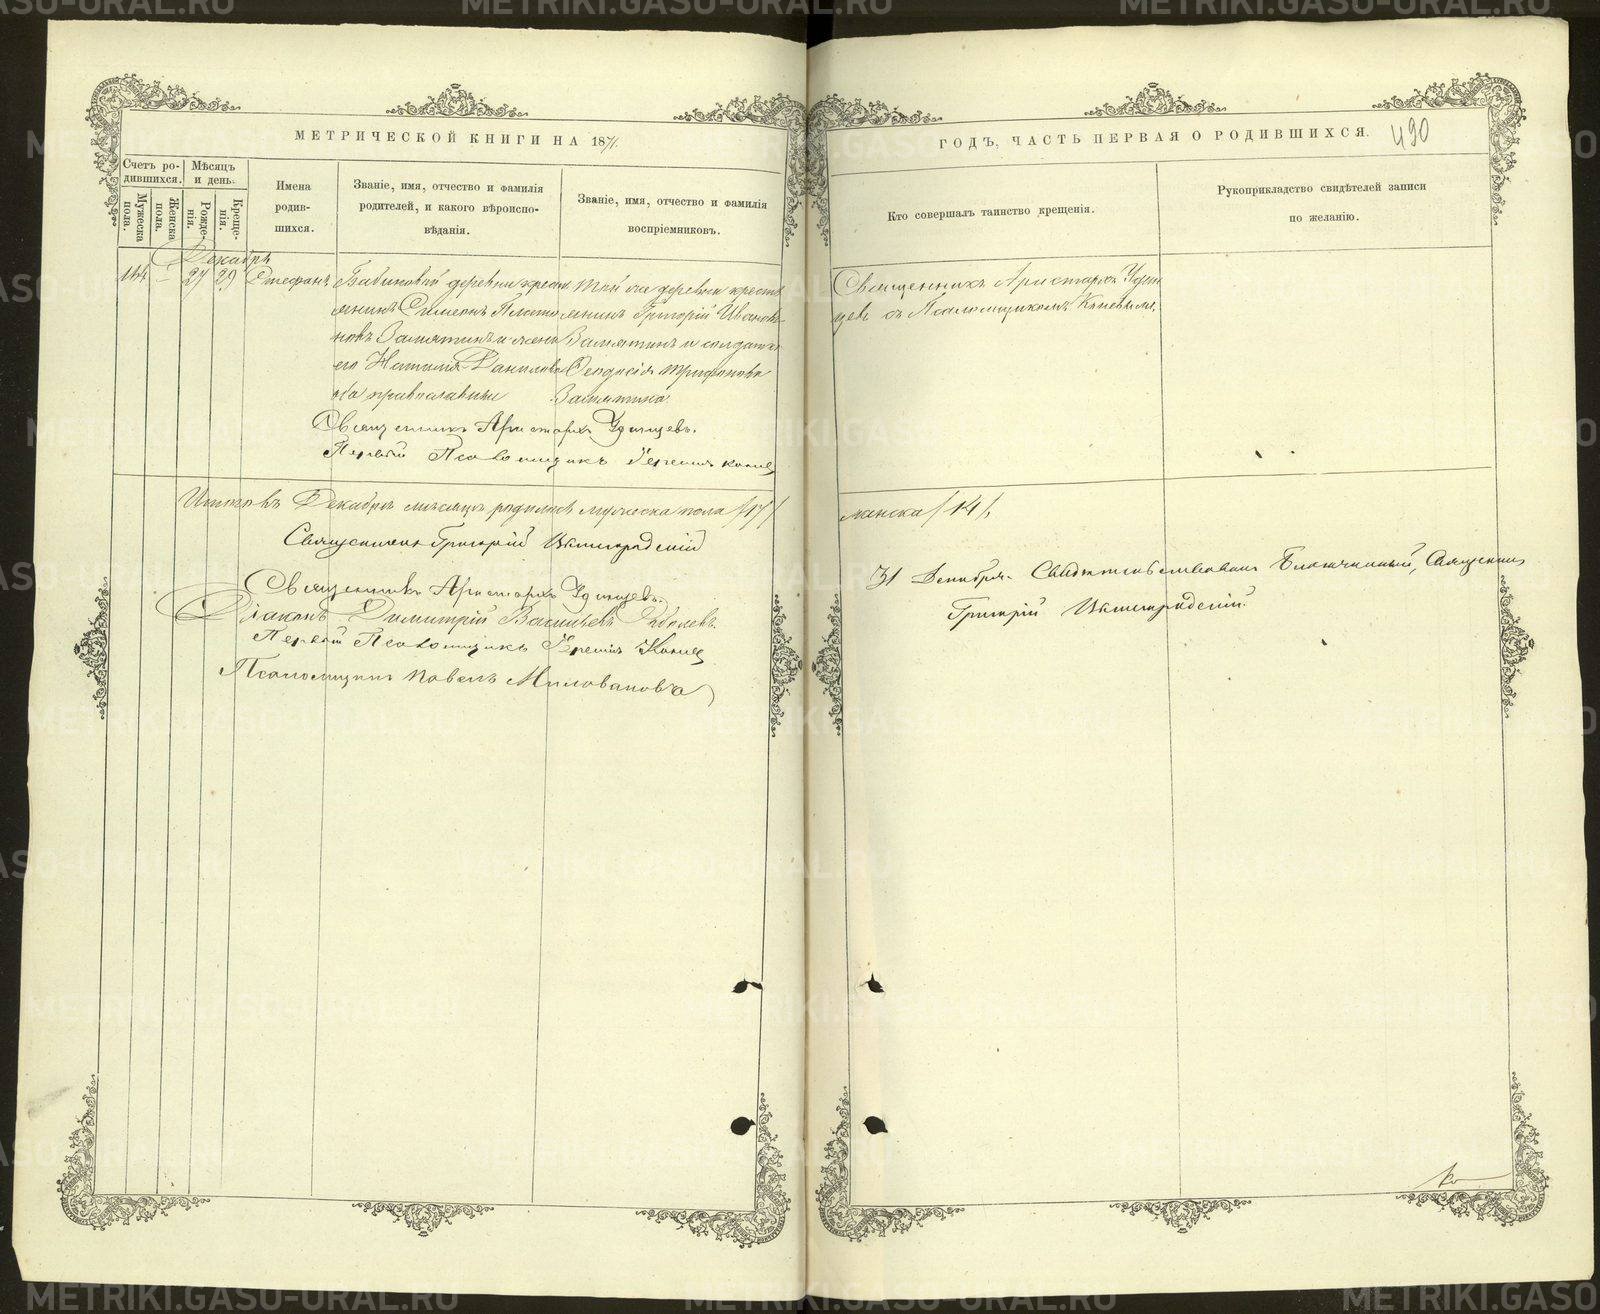 МЕТРИЧЕСКОЙ КНИГИ НА 1871
ГОДЪ, ЧАСТЬ ПЕРВАЯ О РОДИВШИХСЯ.
490
Счетъ ро-
дившихся.
Мѣсяцъ
и день.
Мужеска
пола.
Женска
пола.
Рожде-
нія.
Креще-
нія.
Имена
родив-
шихся.
Званіе, имя, отчество и фамилія
родителей, и какого вѣроиспо-
вѣданія.
Званіе, имя, отчество и фамилія
воспріемниковъ.
Кто совершалъ таинство крещенія.
Рукоприкладство свидѣтелей записи
по желанію.
Декабрь
144 – 27 29 Стефанъ
деревни крестья
янинъ Симеонъ Плато
новъ Замятинъ и жена
его Наталія Данилова
оба православные
Той же деревни кресть
янинъ Григорій Иванов
Замятинъ и солдатка
Феодосія Трифонова
Замятина
Священникъ Аристархъ Удин
цевъ съ Псаломщикомъ
Священникъ Аристархъ Удинцевъ.
Первый Псаломщикъ
Итого въ Декабрѣ мѣсяцѣ родилось мужеска пола /17/
женска /14/.
Священникъ Григорій
Священникъ Аристархъ Удинцевъ.
Діаконъ Димитрій Васильевъ
Первый Псаломщикъ
Псаломщикъ Павелъ Миловановъ
31 Декабря. Свидѣтельствовалъ Благочинный, Священник
Григорій
METRIKI.GASO-URAL.RU